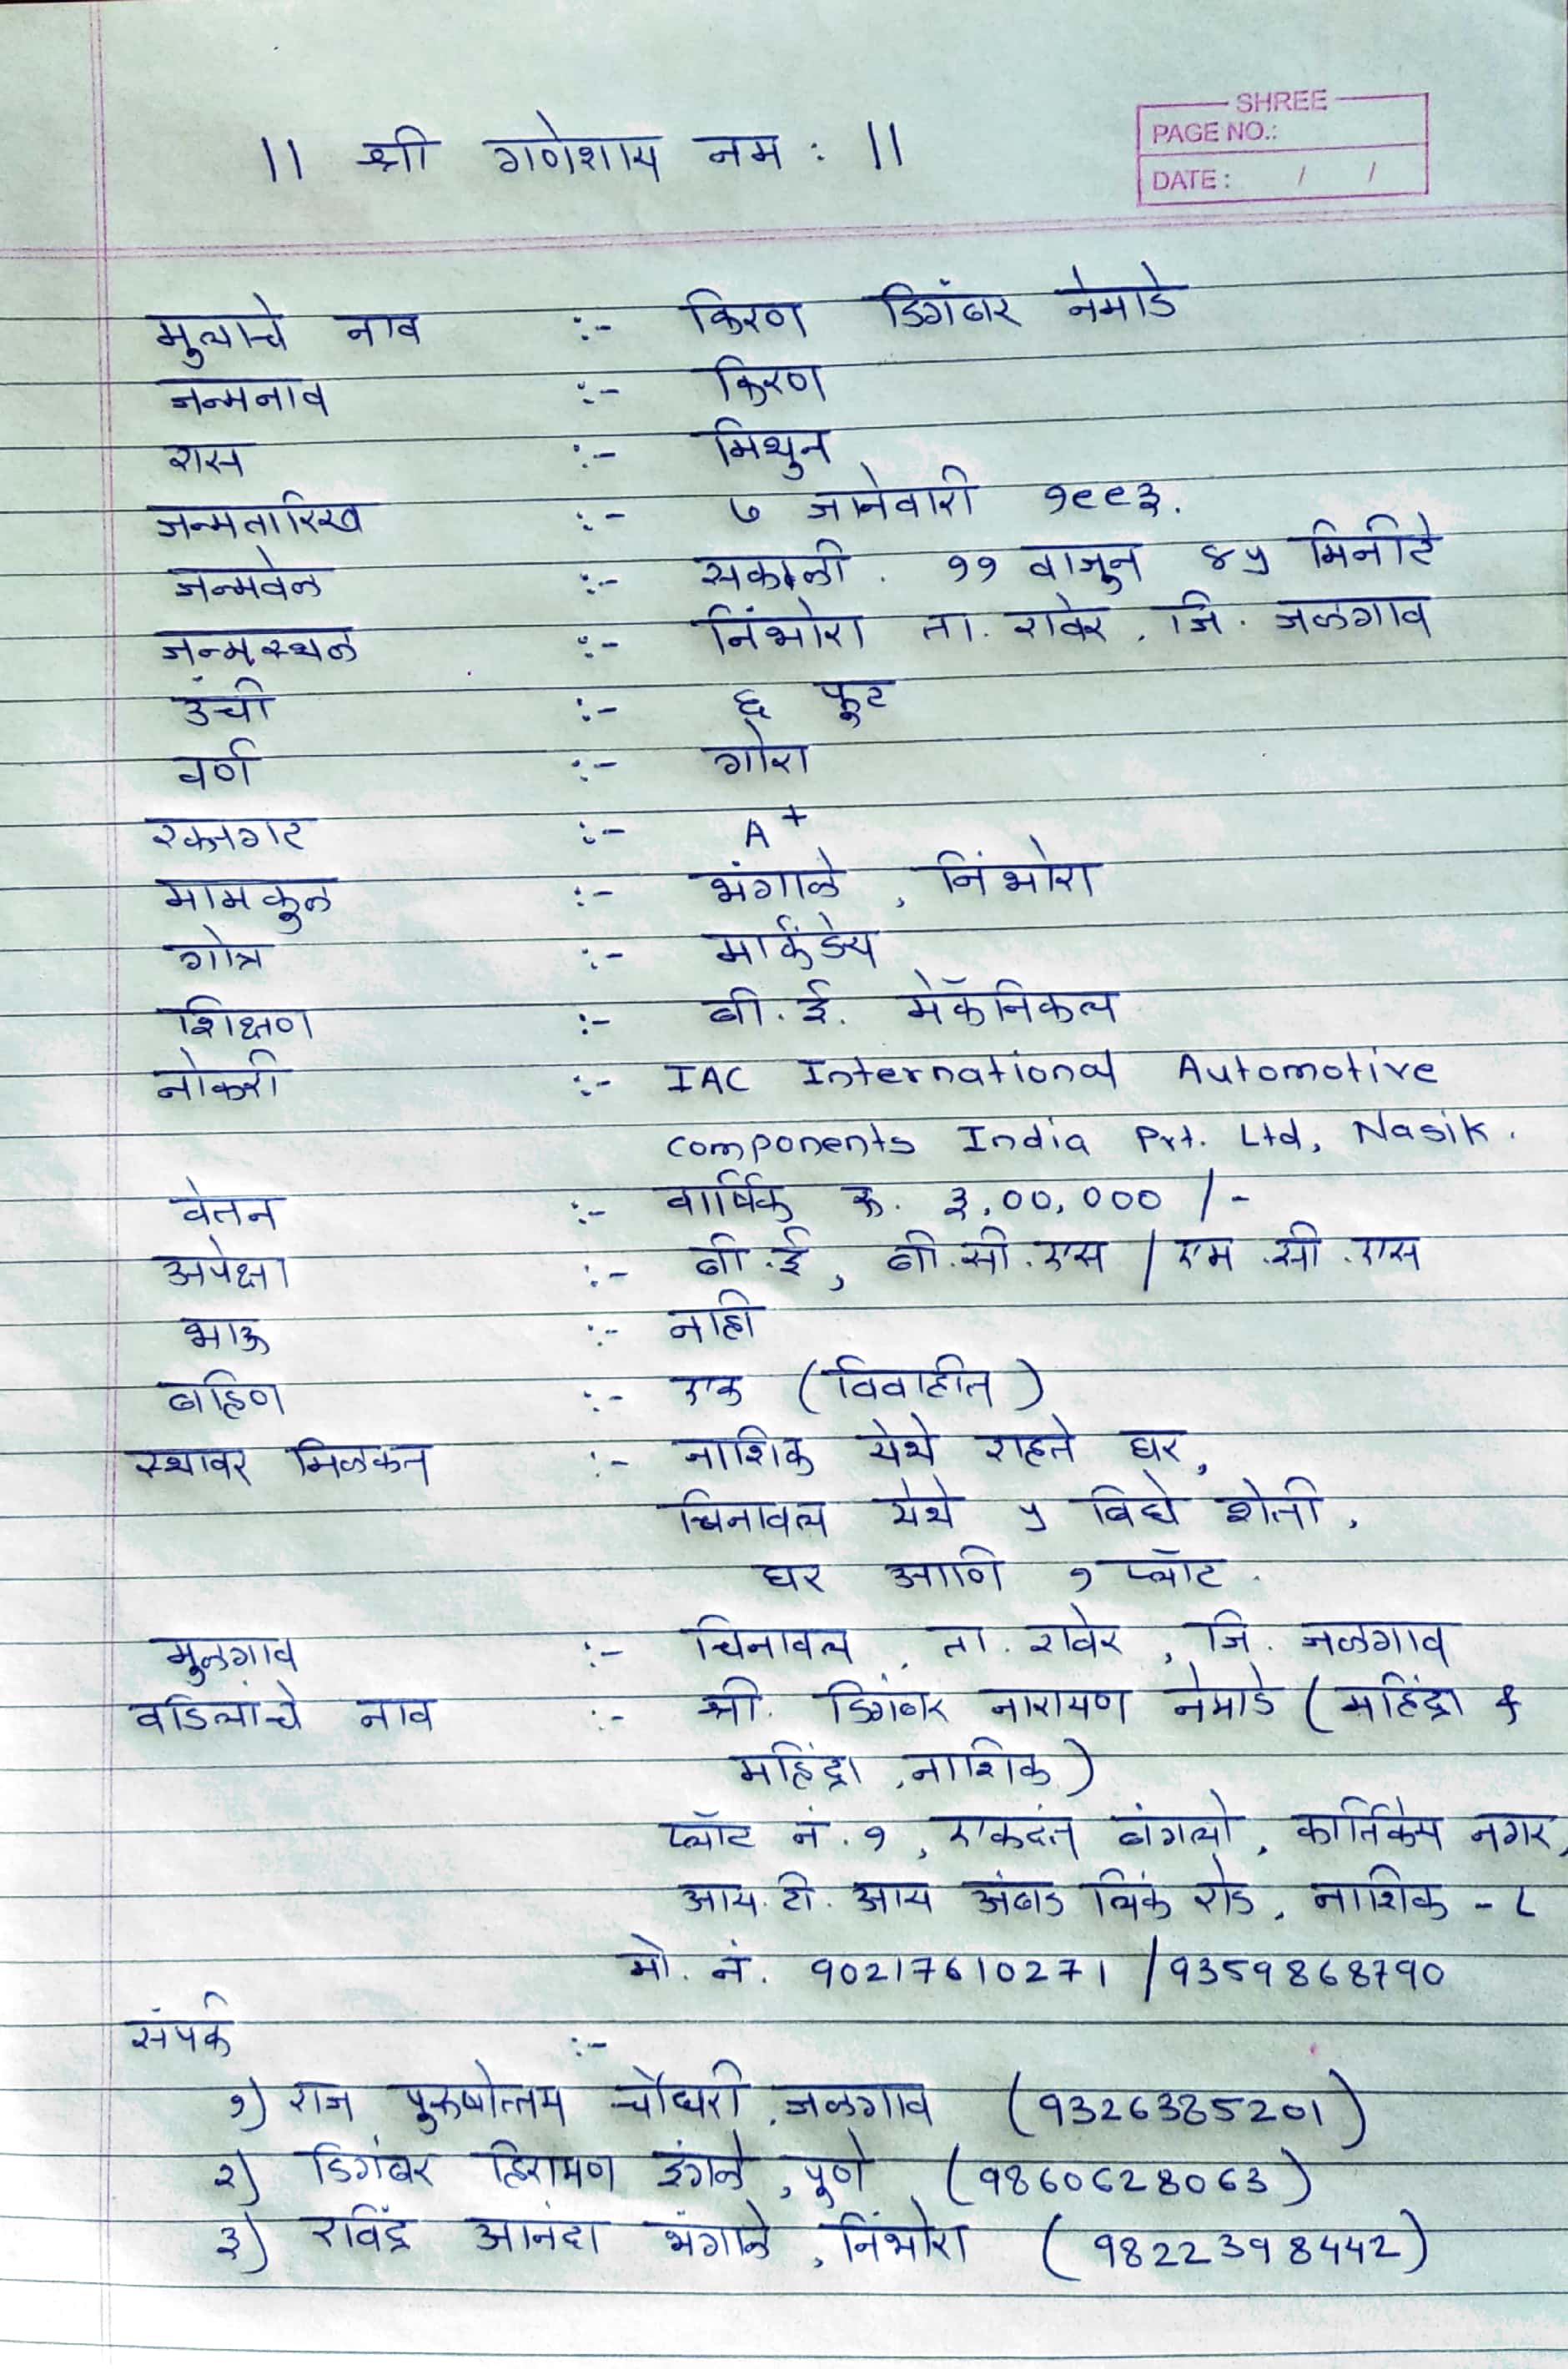 || श्री गणेशाय नम: ||
SHREE
PAGE NO.:
DATE: / /
मुलाचे नाव :- किरण डिगंबर नेमाडे
जन्मनाव :- किरण
रास :- मिथुन
जन्मतारिख :- ७ जानेवारी १९९३.
जन्मवेळ :- सकाळी. ११ वाजून ४५ मिनीटे
जन्मस्थळ :- निंभोरा ता. रावेर, जि. जळगाव
उंची :- ६ फूट
वर्ण :- गोरा
रक्तगट :- A+
मामकुळ :- भंगाळे, निंभोरा
गोत्र :- मार्कंडेय
शिक्षण :- बी.ई. मेकॅनिकल
नोकरी :- IAC International Automotive
components India Pvt. Ltd, Nasik.
वेतन :- वार्षिक रु. ३,00,000/-
अपेक्षा :- बी.ई, बी.सी.एस / एम.सी.एस
भाऊ :- नाही
बहिण :- एक (विवाहीत)
स्थावर मिळकत :- नाशिक येथे राहते घर,
चिनावल येथे ५ बिघे शेती,
घर आणि १ प्लॉट.
मुळगाव :- चिनावल, ता. रावेर, जि. जळगाव
वडिलांचे नाव :- श्री. डिगंबर नारायण नेमाडे (महिंद्रा &
महिंद्रा, नाशिक)
प्लॉट नं. १, एकदंत बंगलो, कार्तिकेय नगर,
आय.टी. आय अंबड लिंक रोड, नाशिक - ८
मो. नं. 90217610271 / 9359868790
संपर्क :-
१) राज पुरुषोत्तम चौधरी, जळगाव (9326385201)
२) डिगंबर हिरामण इंगळे, पुणे (9860628063)
३) रविंद्र आनंदा भंगाळे, निंभोरा (9822398442)